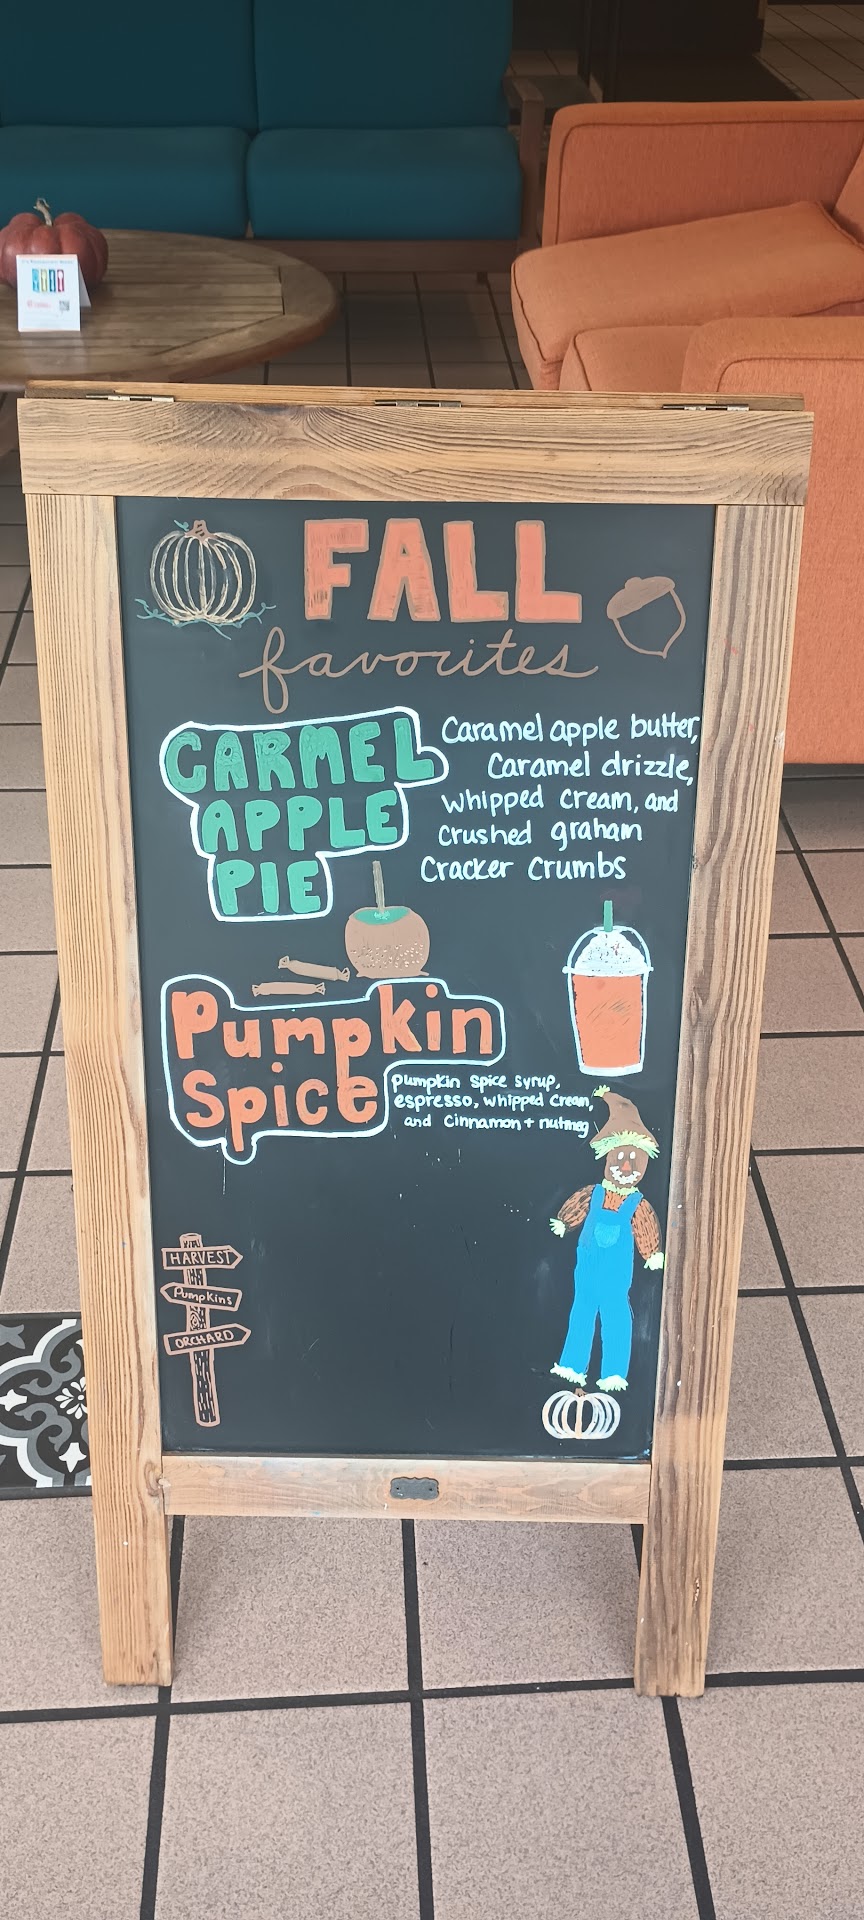 FALL
favorites
CARMEL
APPLE
PIE
Caramel apple butter,
Caramel drizzle,
whipped cream, and
crushed graham
Cracker Crumbs
Pumpkin
Spice
pumpkin spice syrup,
espresso, whipped cream,
and cinnamon + nutmeg
HARVEST
Pumpkins
ORCHARD